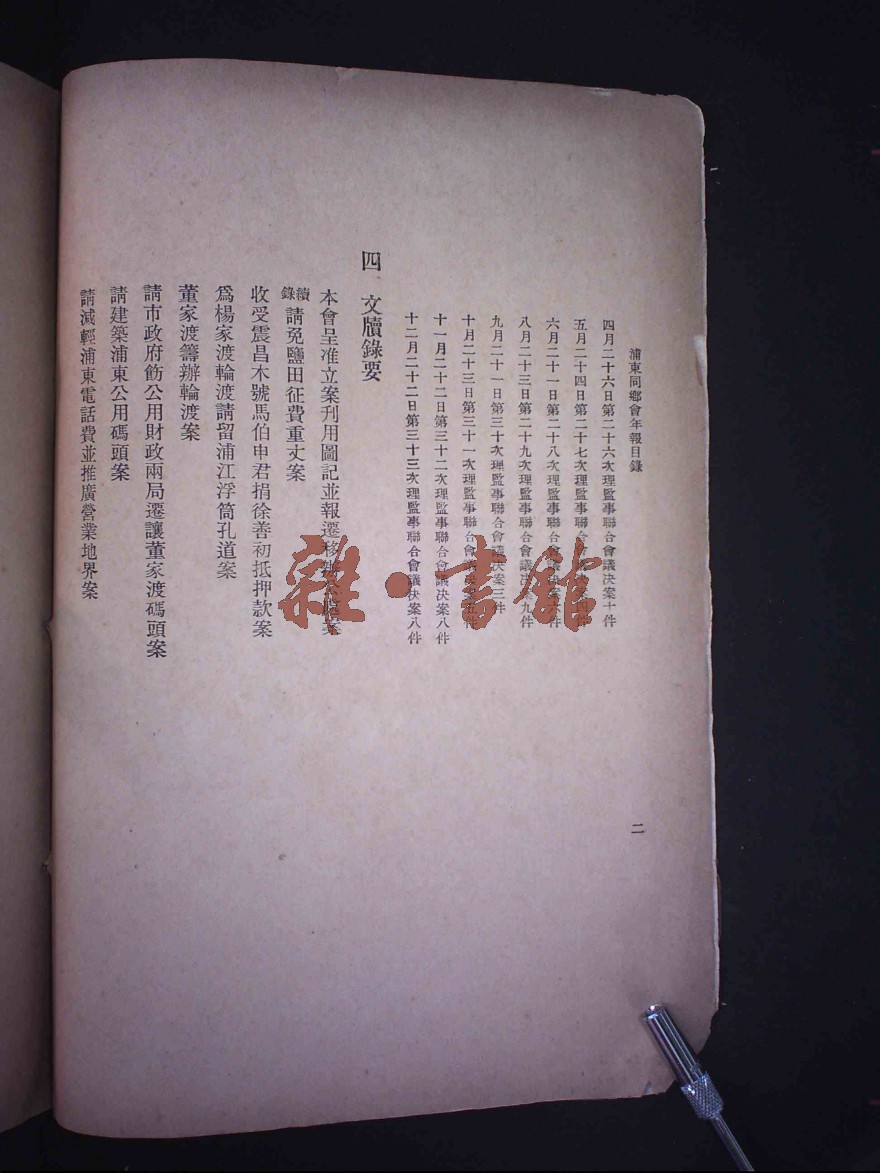 浦東同鄉會年報目錄
二
四月二十六日第二十六次理監事聯合會議決案十件
五月二十四日第二十七次理監事聯合會議決案四件
六月二十一日第二十八次理監事聯合會議決案六件
八月二十三日第二十九次理監事聯合會議決案九件
九月二十一日第三十次理監事聯合會議決案三件
十月二十三日第三十一次理監事聯合會議決案五件
十一月二十二日第三十二次理監事聯合會議決案八件
十二月二十二日第三十三次理監事聯合會議決案八件
四、文牘錄要
本會呈准立案刋用圖記並報遷移辦公處案
續錄請免鹽田征費重丈案
收受震昌木號馬伯申君捐徐善初抵押款案
爲楊家渡輪渡請留浦江浮筒孔道案
董家渡籌辦輪渡案
請市政府飭公用財政兩局遷讓董家渡碼頭案
請建築浦東公用碼頭案
請減輕浦東電話費並推廣營業地界案
雜·書館